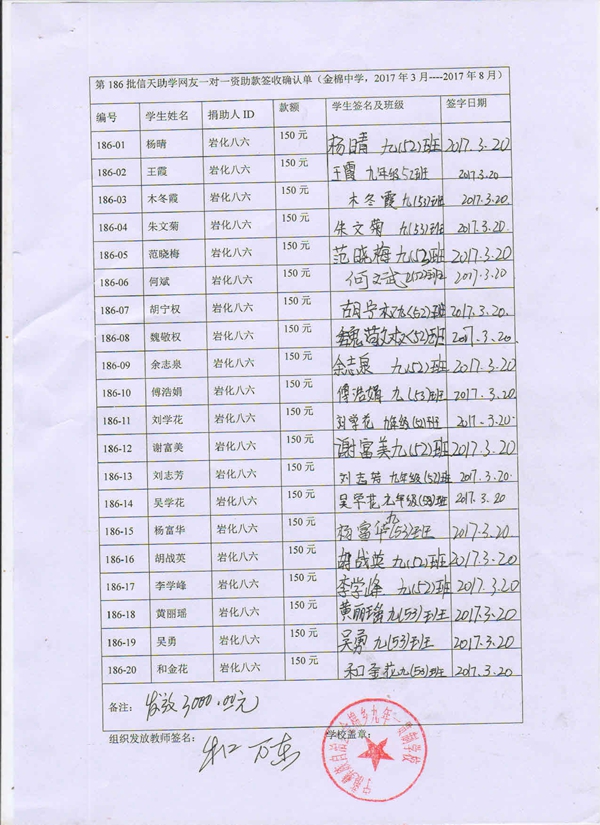 第186批信天助学网友一对一资助款签收确认单（金棉中学，2017年3月----2017年8月）
编号 学生姓名 捐助人ID 款额 学生签名及班级 签字日期
186-01 杨晴 岩化八六 150元 杨晴 九(52)班 2017.3.20
186-02 王霞 岩化八六 150元 王霞 九年级52班 2017.3.20
186-03 木冬霞 岩化八六 150元 木冬霞 九(53)班 2017.3.20
186-04 朱文菊 岩化八六 150元 朱文菊 九(53)班 2017.3.20
186-05 范晓梅 岩化八六 150元 范晓梅 九(52)班 2017.3.20
186-06 何斌 岩化八六 150元 何文武 (52)班 2017.3.20
186-07 胡宁权 岩化八六 150元 胡宁权 九(52)班 2017.3.20
186-08 魏敬权 岩化八六 150元 魏敬权 (52)班 2017.3.20
186-09 余志泉 岩化八六 150元 余志泉 九(52)班 2017.3.20
186-10 傅浩娟 岩化八六 150元 傅浩娟 九(53)班 2017.3.20
186-11 刘学花 岩化八六 150元 刘学花 九年级(52)班 2017.3.20
186-12 谢富美 岩化八六 150元 谢富美 九(52)班 2017.3.20
186-13 刘志芳 岩化八六 150元 刘志芳 九年级(52)班 2017.3.20
186-14 吴学花 岩化八六 150元 吴学花 九年级(53)班 2017.3.20
186-15 杨富华 岩化八六 150元 杨富华 九(53)班 2017.3.20
186-16 胡战英 岩化八六 150元 胡战英 九(52)班 2017.3.20
186-17 李学峰 岩化八六 150元 李学峰 九(52)班 2017.3.20
186-18 黄丽瑶 岩化八六 150元 黄丽瑶 九(53)班 2017.3.20
186-19 吴勇 岩化八六 150元 吴勇 九(53)班 2017.3.20
186-20 和金花 岩化八六 150元 和金花 九(53)班 2017.3.20
备注： 发放3000.00元
组织发放教师签名： 学校盖章：